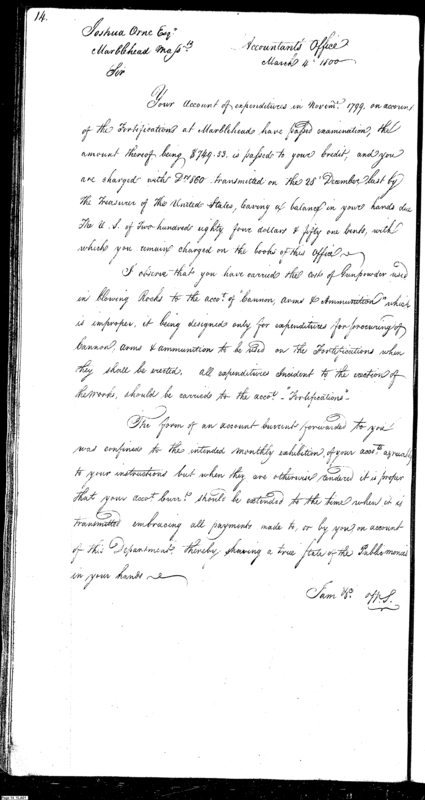 14.
Joshua Orne Esqr.
Marblehead Massts.
Accountants Office
March 4th 1800
Sir
Your Account of expenditures in Novemr. 1799, on account
of the Fortifications at Marblehead have passed examination, the
amount thereof being $749.53. is passed to your credit, and you
are charged with Drs 860. transmitted on the 28th December last by
the Treasurer of the United States, leaving a balance in your hands due
The U. S. of Two hundred eighty four dollars & fifty one cents, with
which you remain charged on the books of this Office.
I observe that you have carried the costs of Gunpowder used
in blowing Rocks to the acct. of "Cannon, Arms & Ammunition" which
is improper, it being designed only for expenditures for procuring of
Cannon, Arms & ammunition to be used on the Fortifications when
they shall be erected. all expenditures Incident to the erection of
the works, should be carried to the acct. "Fortifications".
The form of an account current forwarded to you
was confined to the intended monthly exhibition of your accts. agreeably
to your instructions but when they are otherwise rendered it is proper
that your acct. Currt. should be extended to the time when it is
transmitted embracing all payments made to, or by you, on account
of this Department. thereby shewing a true State of the Public monies
in your hands
I am &c. W. S.